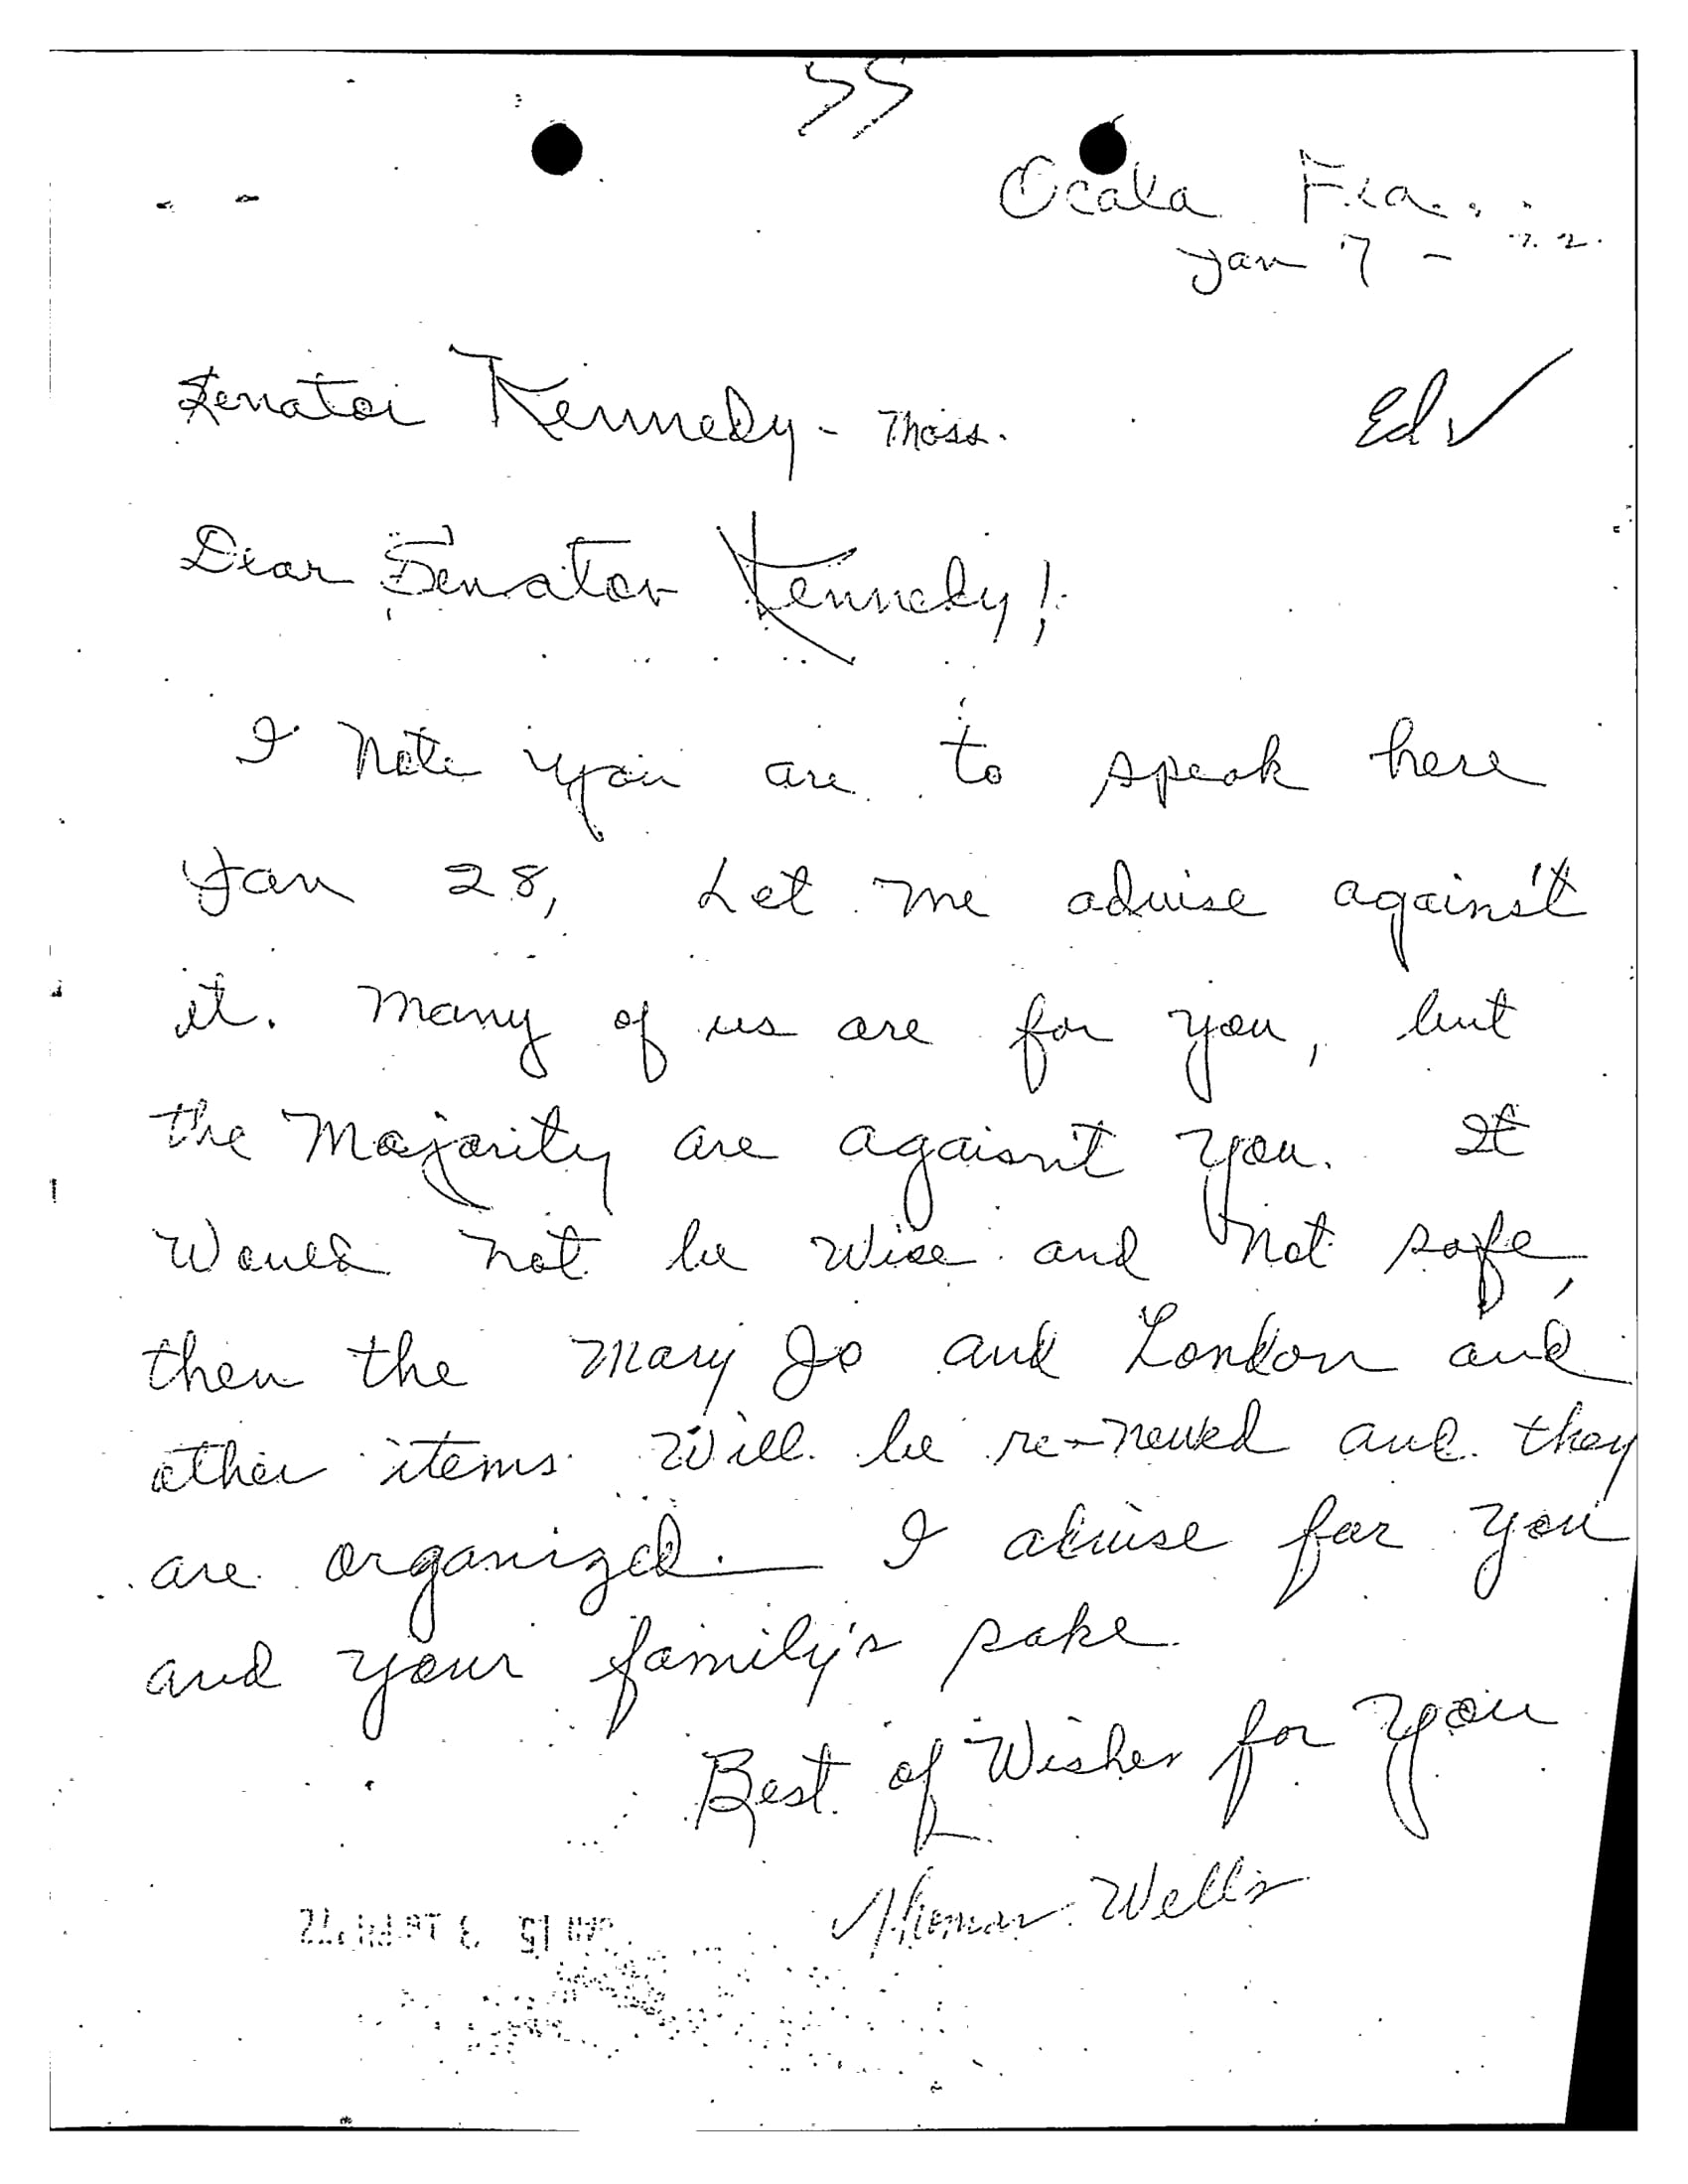 55
Ocala Fla.
Jan 7 - 72.
Senator Kennedy - Mass.
Ed ✓
Dear Senator Kennedy!
I note you are to speak here
Jan 28, Let me advise against
it. Many of us are for you, but
the Majority are agaisnt you. It
Would not be wise and not safe,
then the Mary Jo and London and
other items will be re-newed and they
are organized. I advise for you
and your family's sake
Best of Wishes for you
Thomas Wells